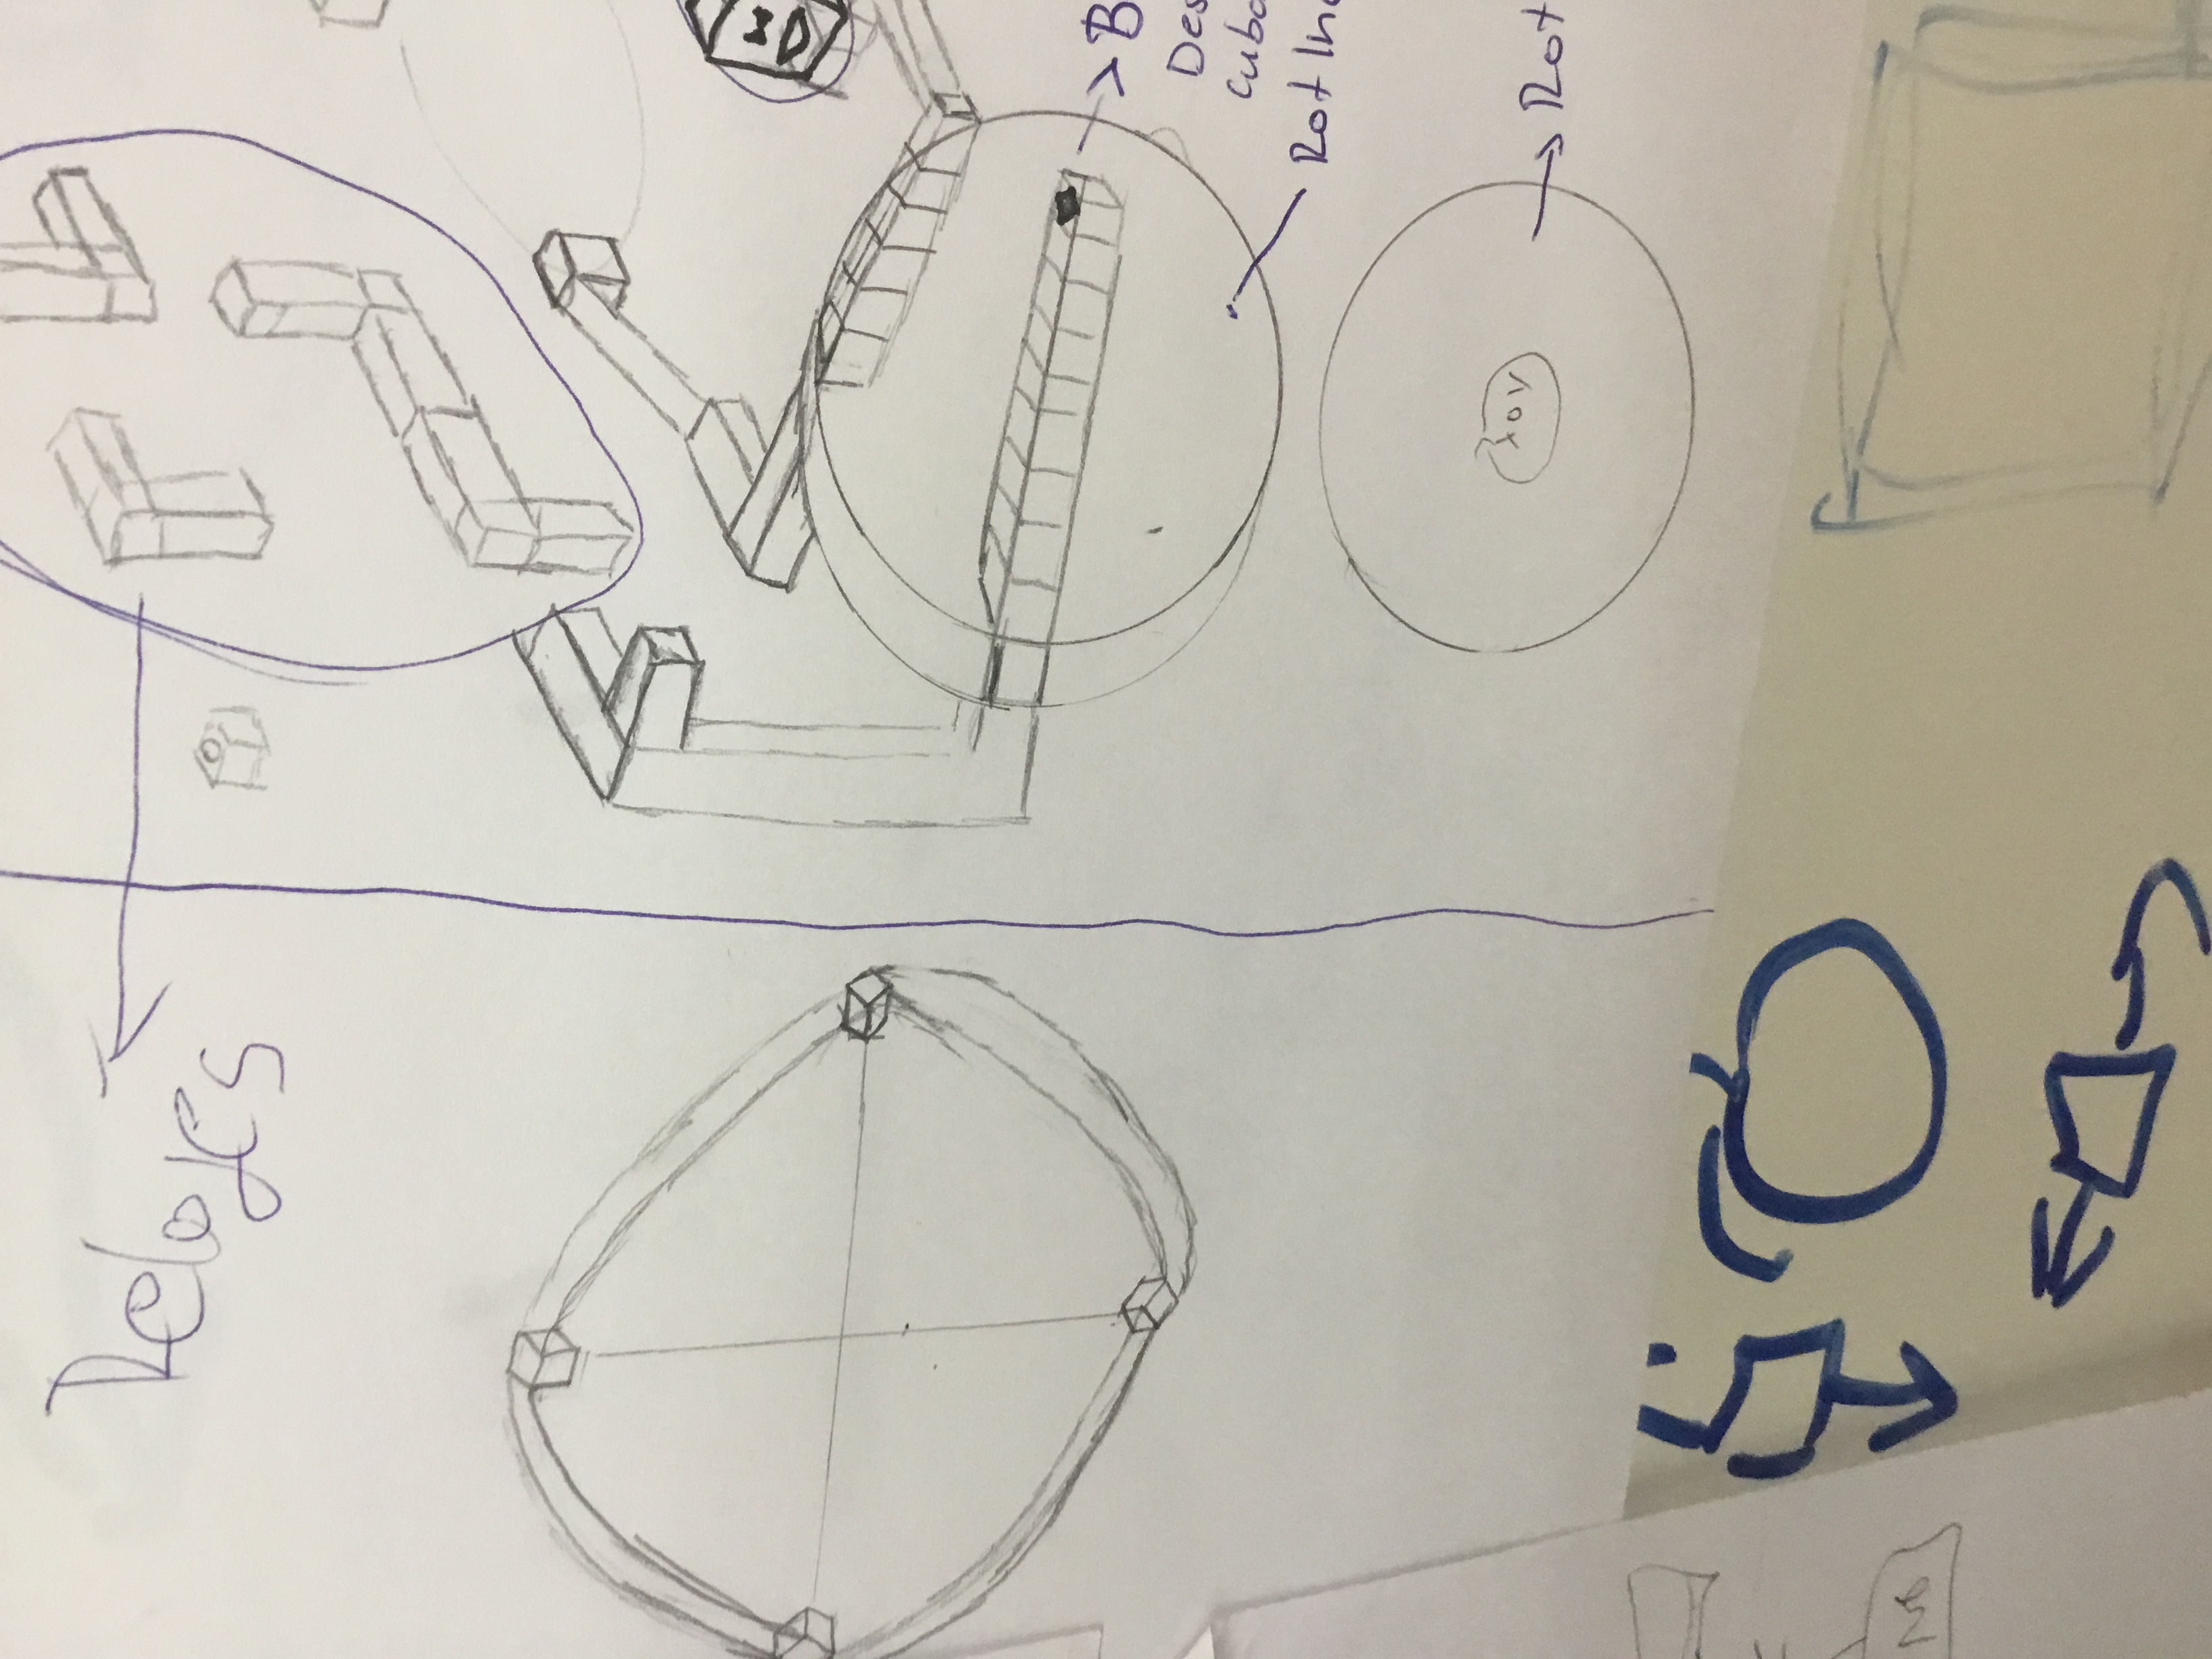 Relojes
B
Des
cubo
Rot In
Rot
No